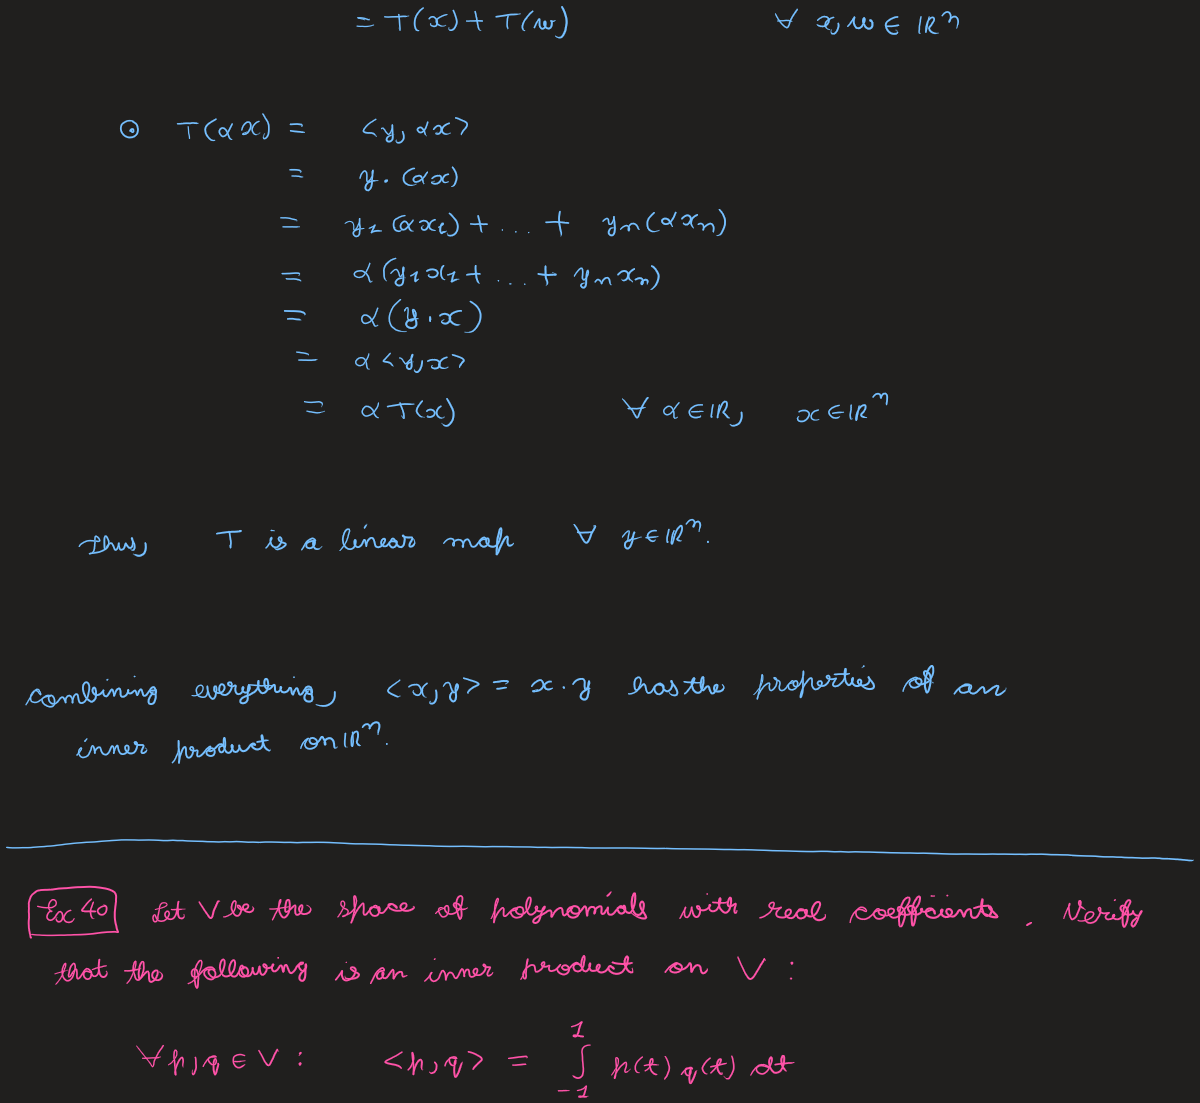 = T(x) + T(w) ∀ x, w ∈ ℝⁿ
⊙ T(αx) = <y, αx>
= y. (αx)
= y₁ (αx₁) + ... + yₙ(αxₙ)
= α (y₁x₁ + ... + yₙxₙ)
= α (y.x)
= α <y,x>
= α T(x) ∀ α ∈ ℝ, x ∈ ℝⁿ
Thus, T is a linear map ∀ y ∈ ℝⁿ.
combining everything, <x,y> = x.y has the properties of an
inner product on ℝⁿ.
Ex 40 Let V be the space of polynomials with real coefficients. Verify
that the following is an inner product on V :
∀ p,q ∈ V : <p,q> = ∫₋₁¹ p(t) q(t) dt